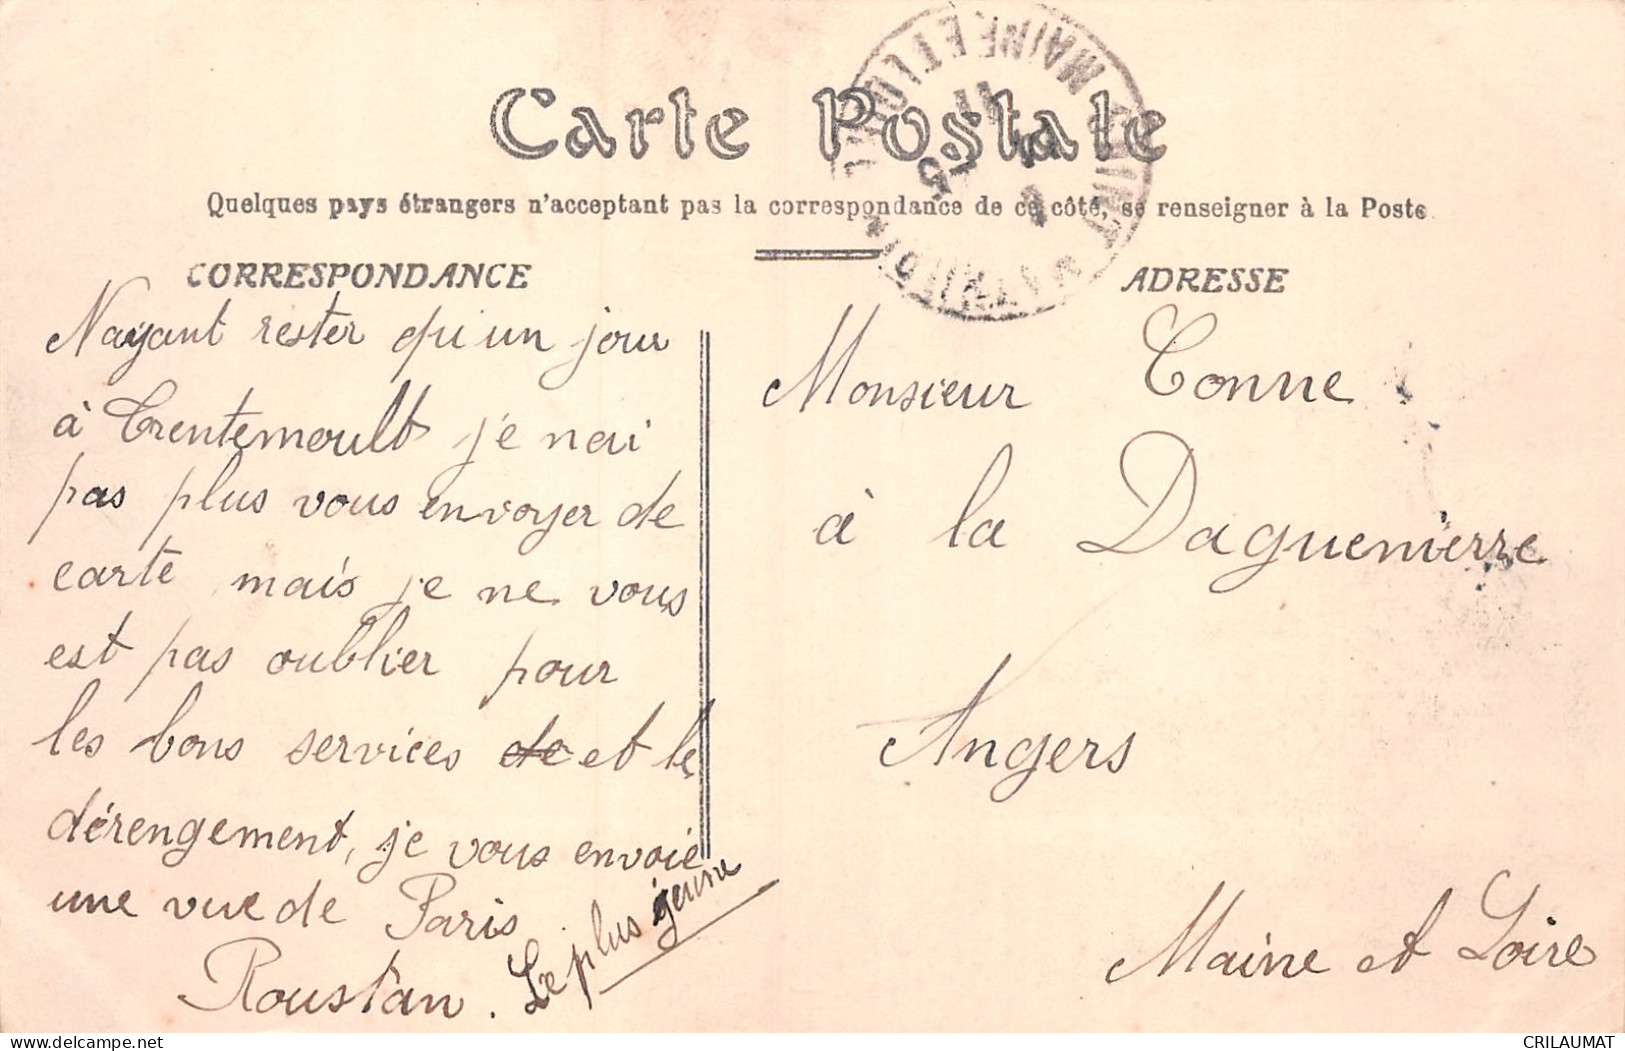 Carte Postale
Quelques pays étrangers n'acceptant pas la correspondance de ce côté, se renseigner à la Poste
CORRESPONDANCE
Nayant rester qu'un jour
à Trentemoult je n'ai
pas plus vous envoyer de
carte mais je ne vous
est pas oublier pour
les bons services de et le
dérengement, je vous envoie
une vue de Paris
Roustan. Le plus jeune
ADRESSE
Monsieur Tonne
à la Daguenierre
Angers
Maine et Loire
MAINE ET LOIRE
delcampe.net
CRILAUMAT